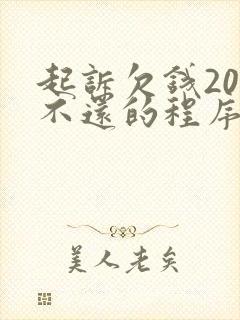 起訴欠錢20
不還的程序
美人老矣